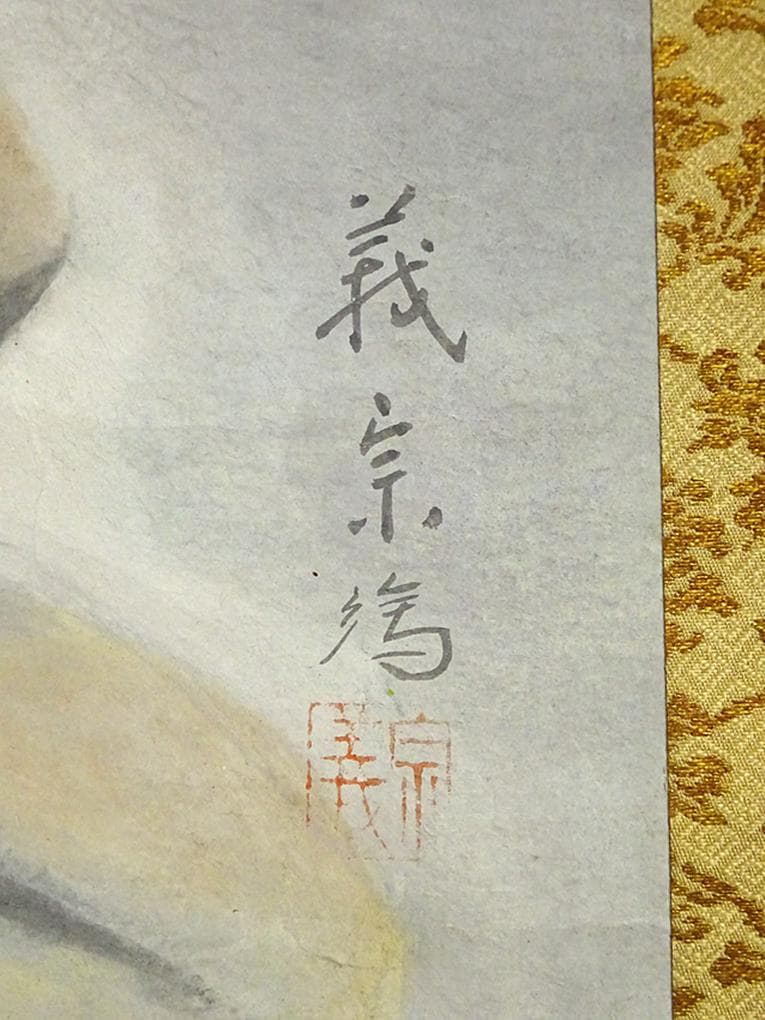 義宗
宗義